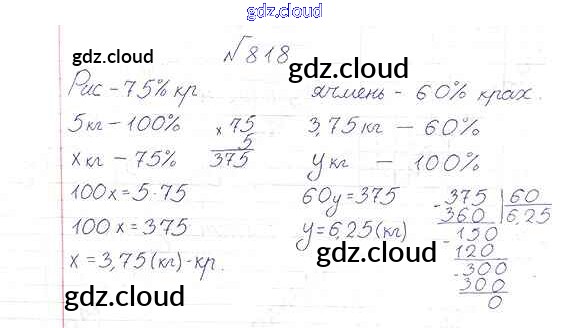 gdz.cloud
№818
gdz.cloud
gdz.cloud
Рис - 75% кр.
ячмень - 60% крах.
5 кг - 100%
x 75
5
375
3,75 кг - 60%
x кг - 75%
y кг - 100%
gdz.cloud
gdz.cloud
100x = 5·75
60y = 375
- 375 | 60
360 6,25
100x = 375
y = 6,25 (кг)
- 150
120
gdz.cloud
x = 3,75 (кг) - кр.
- 300
300
0
gdz.cloud
gdz.cloud